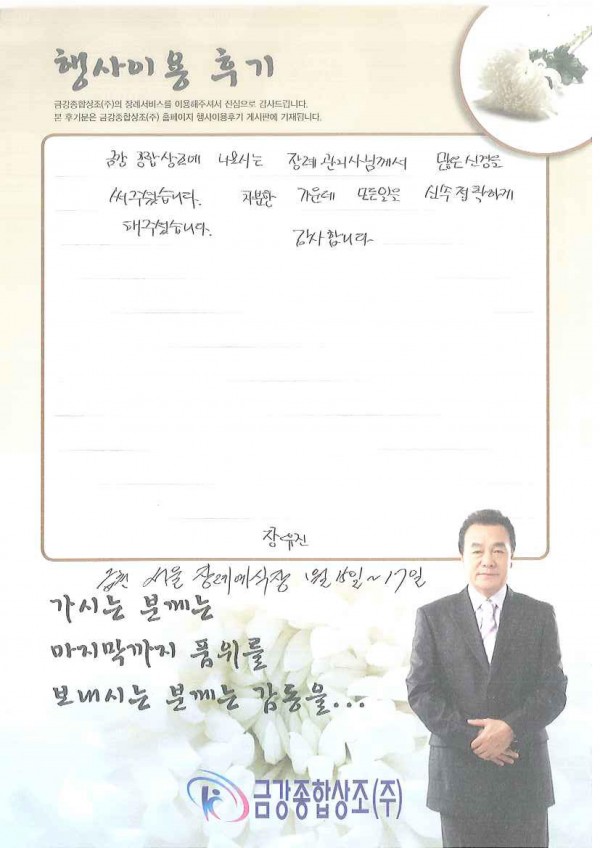 행사이용 후기
금강종합상조(주)의 장례서비스를 이용해주셔서 진심으로 감사드립니다.
본 후기분은 금강종합상조(주) 홈페이지 행사이용후기 게시판에 기재됩니다.
금강 종합상조에 나오시는 장례 관리사님께서 많은 신경을
써주셨습니다. 차분한 가운데 모든일을 신속 정확하게
해주셨습니다. 감사합니다
장유진
서울 장례예식장 1월 15일~17일
가시는 분께는
마지막까지 품위를
보내시는 분께는 감동을...
금강종합상조(주)